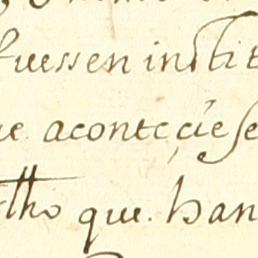 fuessen instit
ue aconteçiese
rtho que. han